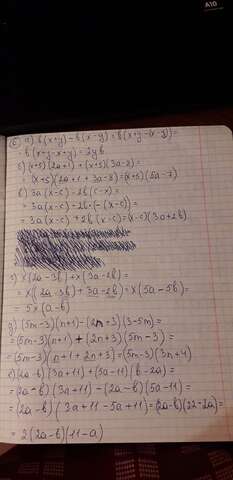 А10
⑥ а) b(x+y)-b(x-y)=b(x+y-(x-y))=
=b(x+y-x+y)=2yb
б) (x+5)(2a+1)+(x+5)(3a-8)=
=(x+5)(2a+1+3a-8)=(x+5)(5a-7)
в) 3a(x-c)-2b(c-x)=
=3a(x-c)-2b·(-(x-c))=
=3a(x-c)+2b(x-c)=(x-c)(3a+2b)
г) x(2a-3b)+x(3a-2b)=
=x(2a-3b+3a-2b)=x(5a-5b)=
=5x(a-b)
д) (5m-3)(n+1)-(2n+3)(3-5m)=
=(5m-3)(n+1)+(2n+3)(5m-3)=
=(5m-3)(n+1+2n+3)=(5m-3)(3n+4)
е) (2a-b)(3a+11)+(5a-11)(b-2a)=
=(2a-b)(3a+11)-(2a-b)(5a-11)=
=(2a-b)(3a+11-5a+11)=(2a-b)(22-2a)=
=2(2a-b)(11-a)